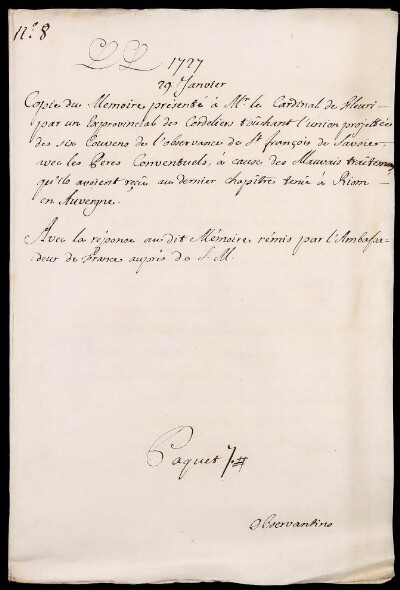 n.° 8
1727
29 Janvier
Copie du Memoire présenté à Mr. le Cardinal de Fleuri
par un Exprovincial des Cordeliers toûchant l'union projettée
des six Couvens de l'observance de St. françois de Savoie,
avec les Peres Conventuels, à cause des Mauvais traitemens
qu'ils avoient reçûs au dernier chapitre tenu à Riom
en Auvergne.
Avec la réponse au dit Mémoire rémis par l'Ambassa-
deur de France auprés de S. M.
Paquet 7.
Observantins